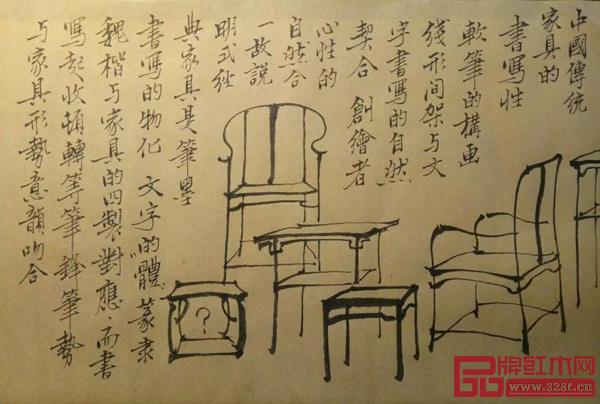 中國傳统
家具的
書寫性
軟筆的構画
线形间架与文
字書寫的自然
契合 創繪者
心性的
自然合
一故説
明式经
典家具是筆墨
書写的物化 文字"的體"篆隶
魏楷与家具的四製對應、而書
寫起收頓轉等筆鋒筆勢
与家具形勢意韻吻合
?
品牌红木网
www.328f.cn